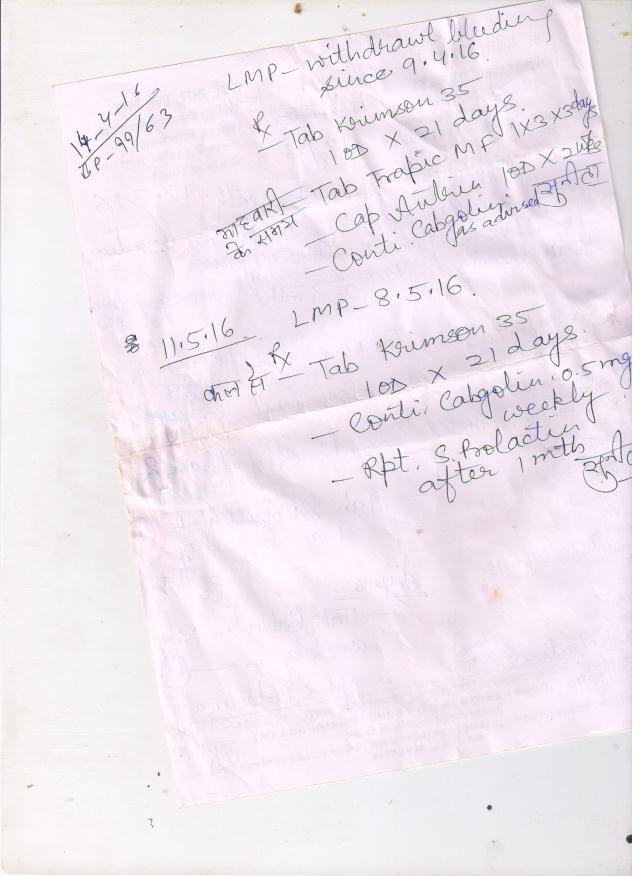 14-4-16
BP-99/63
LMP - withdrawl bleeding
since 9.4.16.
Rx
- Tab Krimson 35
1OD X 21 days.
माहवारी
के समय
- Tab Trapic MF 1X3X3days
- Cap 1OD X 2wks
- Conti. Cabgolin.
as advised
सुनीता
11.5.16
LMP - 8.5.16.
कल से
Rx
- Tab Krimson 35
1OD X 21 days.
- Conti. Cabgolin 0.5 mg
weekly
- Rpt. S. Prolactin
after 1 mth